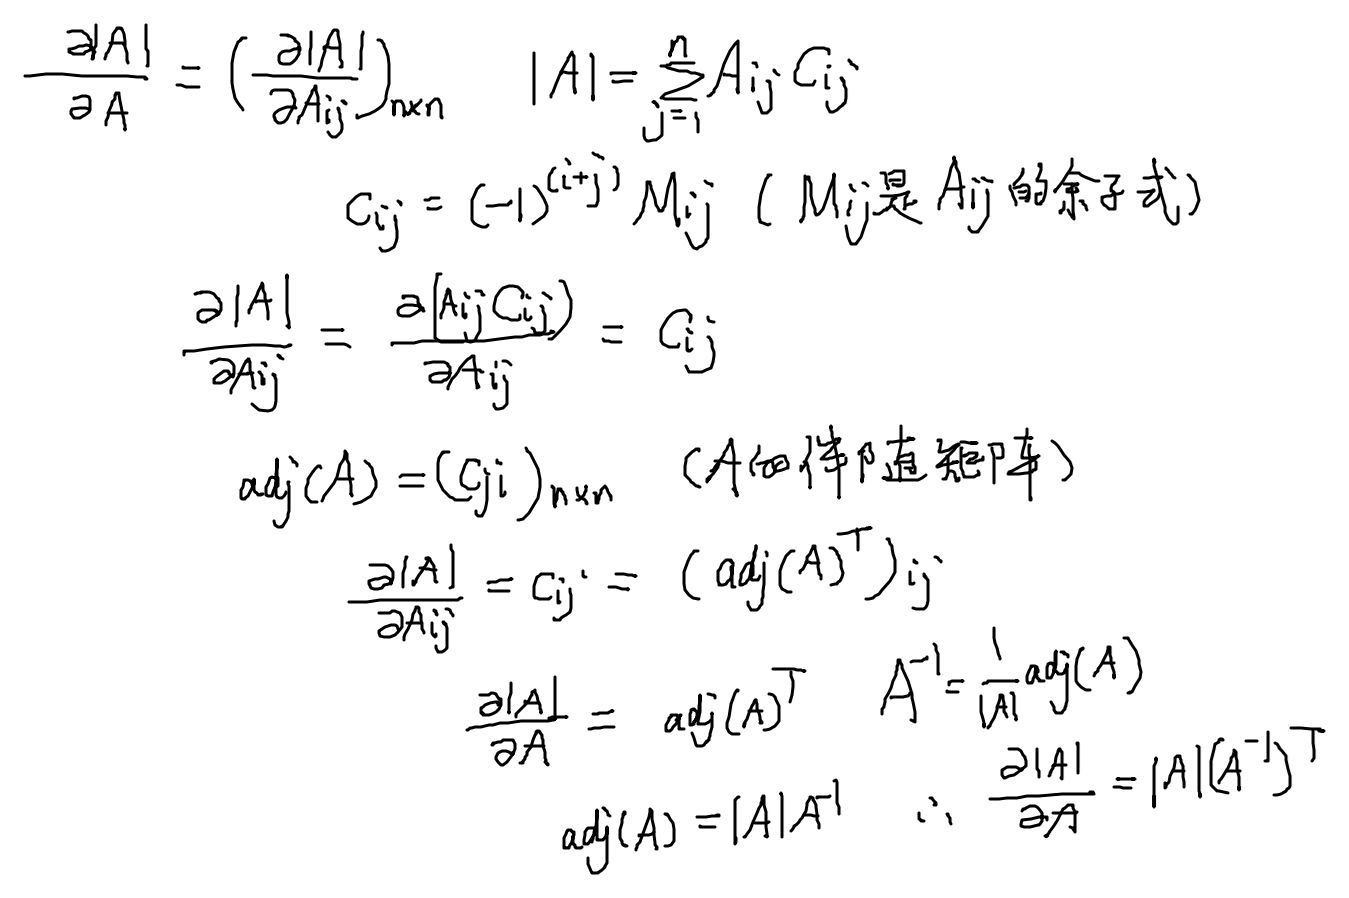 ∂|A|/∂A = (∂|A|/∂Aij)n×n |A| = ∑_{j=i}^{n} Aij Cij
Cij = (-1)^(i+j) Mij (Mij是Aij的余子式)
∂|A|/∂Aij = ∂(Aij Cij)/∂Aij = Cij
adj(A) = (Cji)n×n (A的伴随矩阵)
∂|A|/∂Aij = Cij = (adj(A)^T)ij
∂|A|/∂A = adj(A)^T A^-1 = 1/|A| adj(A)
adj(A) = |A|A^-1 ∴ ∂|A|/∂A = |A|(A^-1)^T